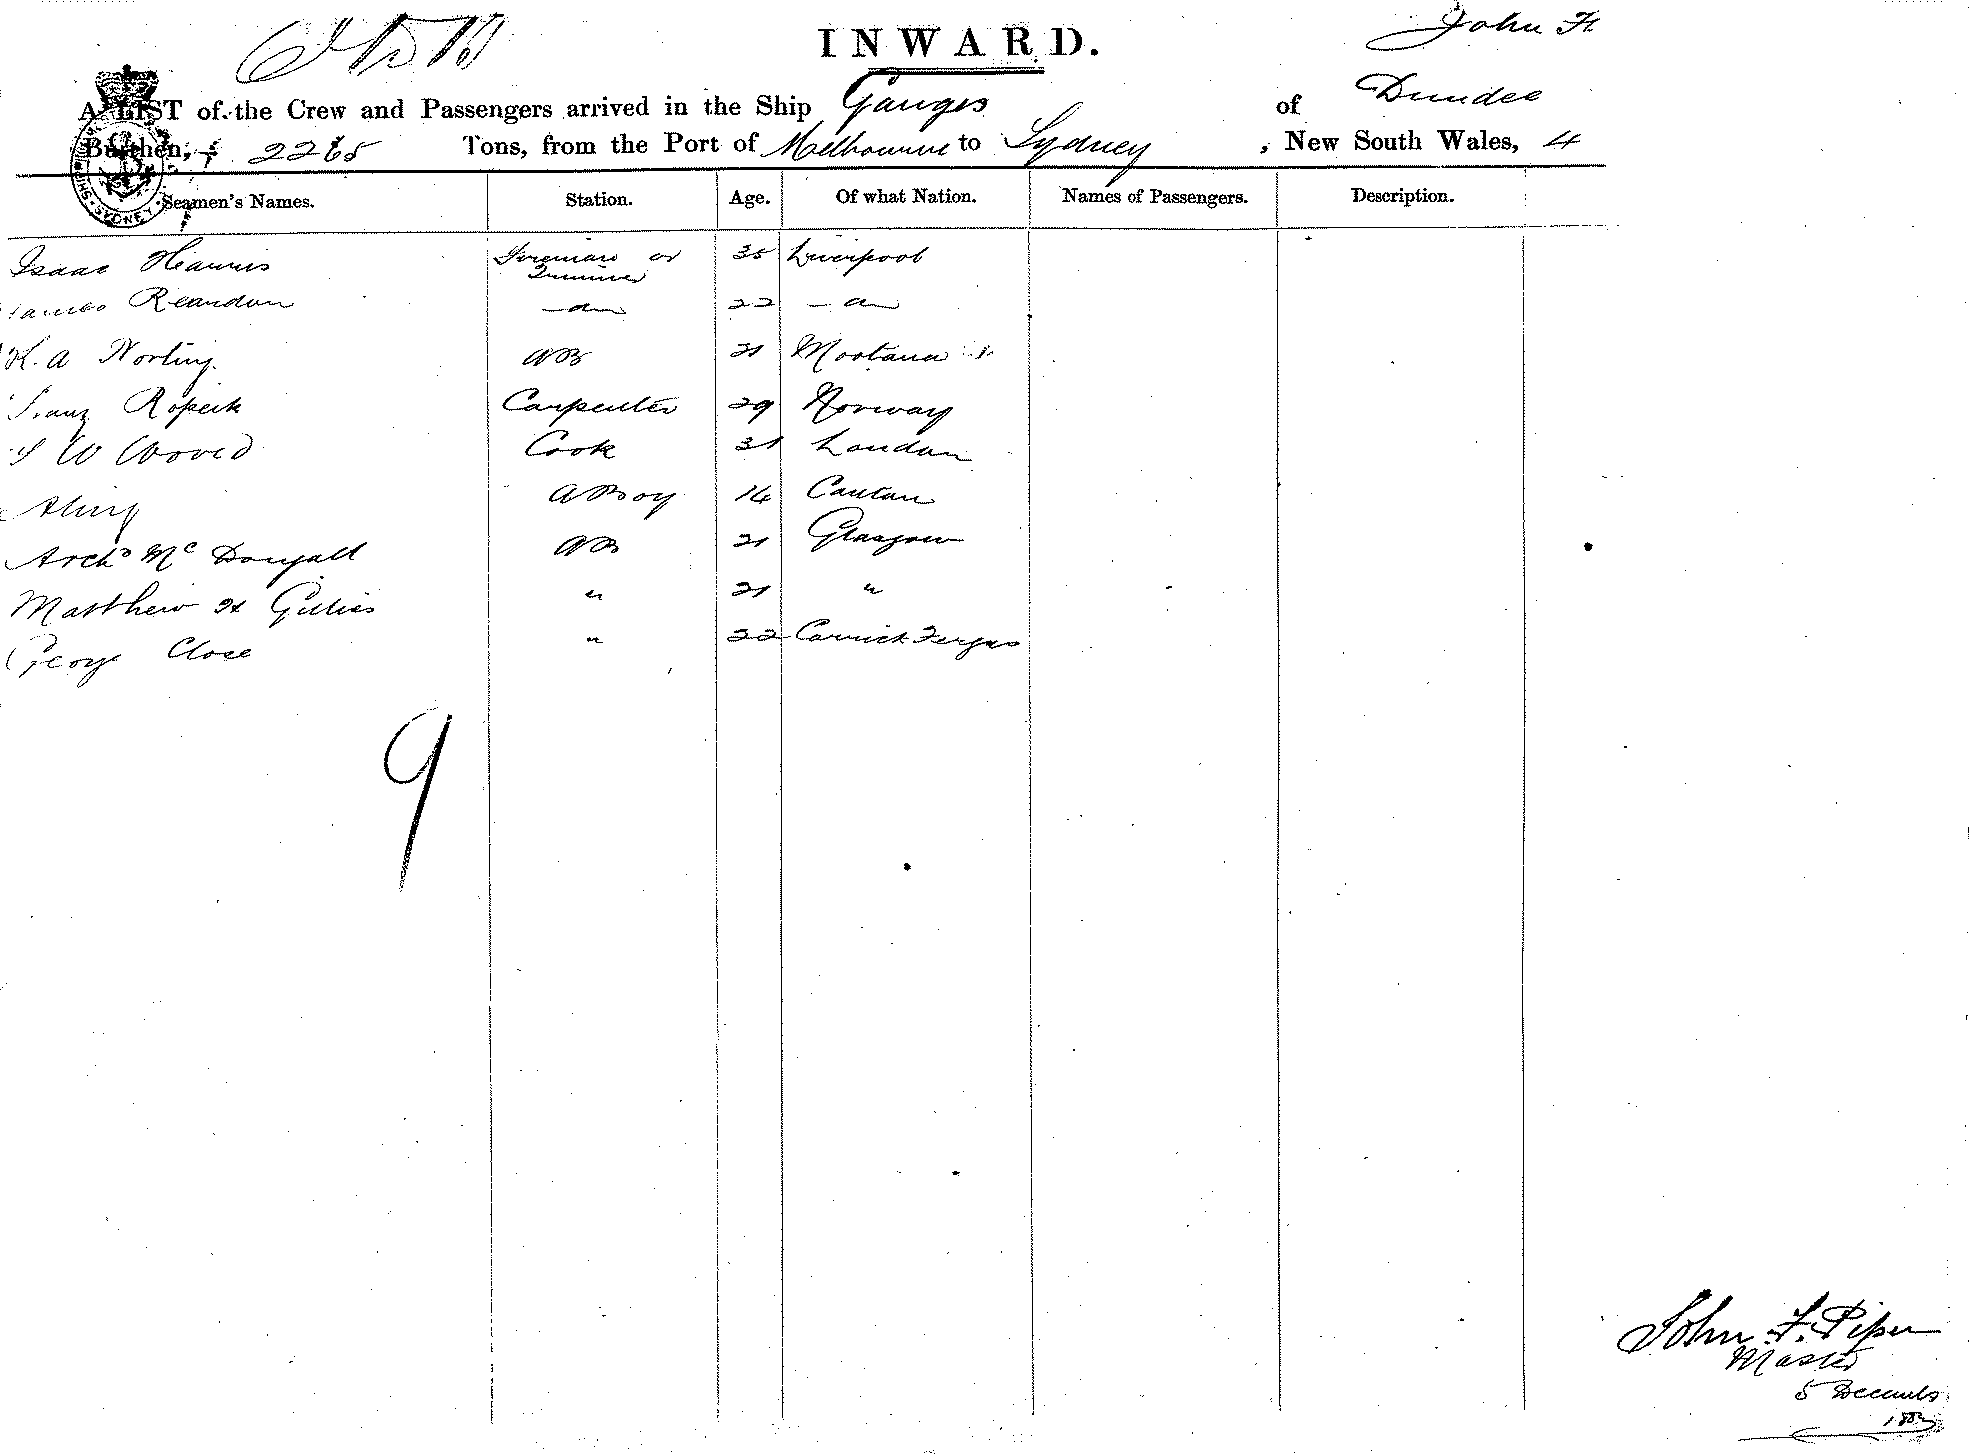 INWARD.
John F.
A LIST of the Crew and Passengers arrived in the Ship Ganges of Dundee
Burthen, 2265 Tons, from the Port of Melbourne to Sydney, New South Wales, 4
Seamen's Names. Station. Age. Of what Nation. Names of Passengers. Description.
Isaac Fireman or 35 Liverpool
Trimmer
James Reardon do 22 do
H. A Norling. AB 21
Franz Ropeik Carpenter 29 Norway
W Cook 31 London
Ah A Boy 14 Canton
Archd McDougall AB 21 Glasgow
Matthew H Gillies " 21 "
George Close " 22 Carrick Fergus
9
John F. Piper
Master
5 December
SYDNEY